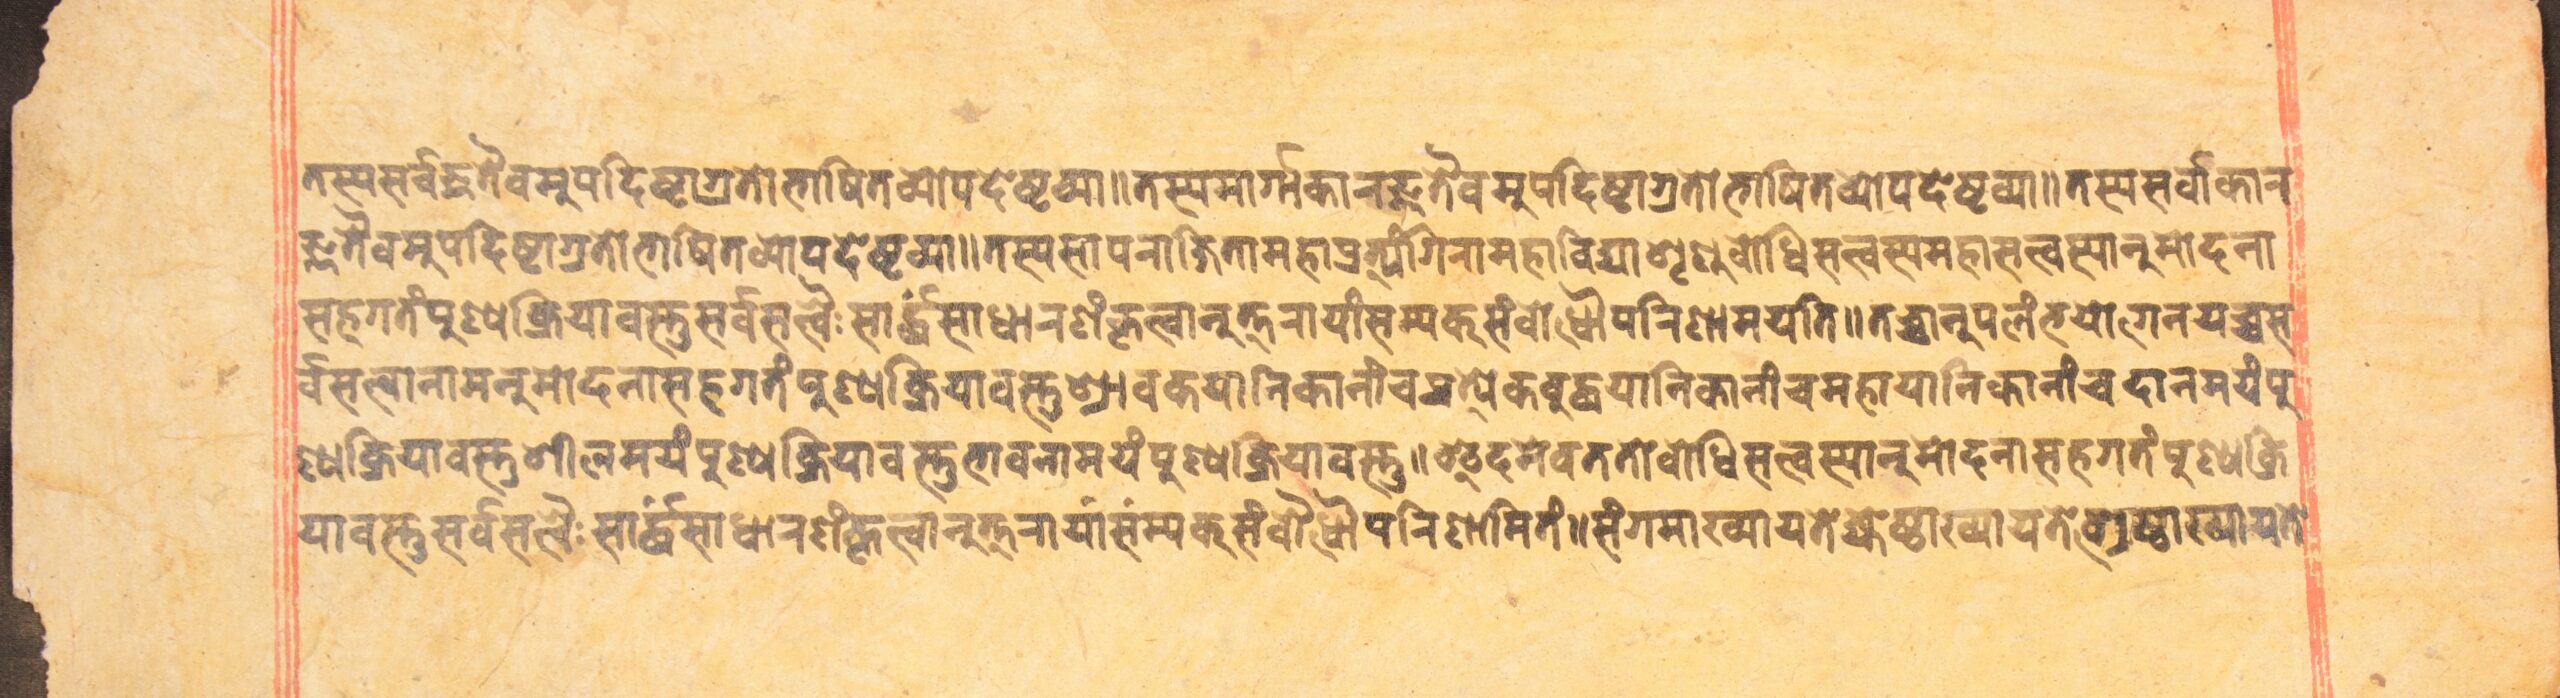 तस्यसर्वज्ञतैवमुपदिष्टाग्रतोभाषितव्योपदेष्टव्या॥तस्यमार्गाकारज्ञतैवमुपदिष्टाग्रतोभाषितव्योपदेष्टव्या॥तस्यसर्वाकार
ज्ञतैवमुपदिष्टाग्रतोभाषितव्योपदेष्टव्या॥तस्यसापराजितामहाप्रत्यंगिरामहाविद्याशृणुबोधिसत्त्वस्यमहासत्त्वस्यानुमोदना
सहगतंपुण्यक्रियावस्तुसर्वसत्त्वैःसार्द्धंसाधारणंकृत्वानुत्तरायांसम्यक्संबोधौपरिणामयति॥तच्चानुपलंभयोगेनयच्चस
र्वसत्त्वानामनुमोदनासहगतंपुण्यक्रियावस्तुश्रावकयानिकानांचप्रत्येकबुद्धयानिकानांचमहायानिकानांचदानमयंपु
ण्यक्रियावस्तुशीलमयंपुण्यक्रियावस्तुभावनामयंपुण्यक्रियावस्तु॥इदमेवततोबोधिसत्त्वस्यानुमोदनासहगतंपुण्यक्रि
यावस्तुसर्वसत्त्वैःसार्द्धंसाधारणंकृत्वानुत्तरायांसंम्यक्संबौधौपरिणामितं॥संगमाख्यायतेज्येष्ठाख्यायतेश्रेष्ठाख्यायते